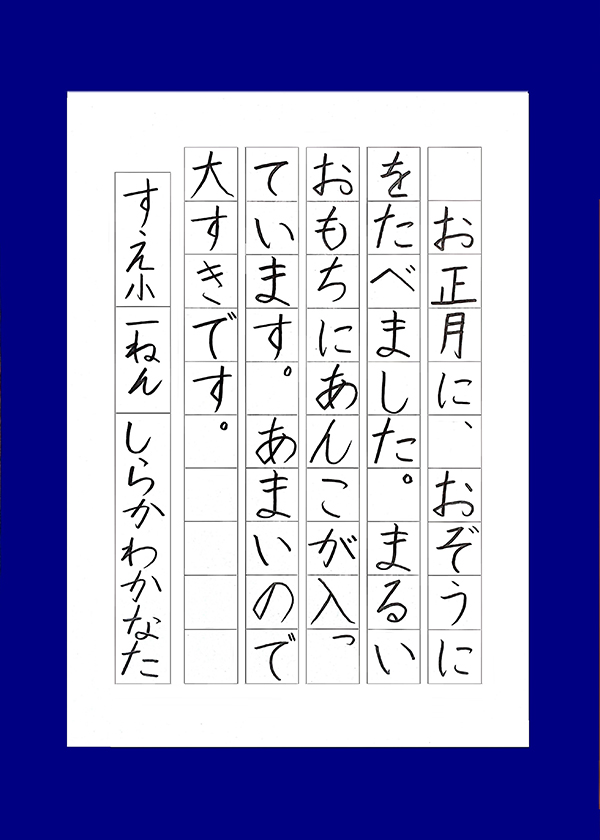 お正月に、おぞうに
をたべました。まるい
おもちにあんこが入っ
ています。あまいので
大すきです。
すえ小　一ねん　しらかわかなた